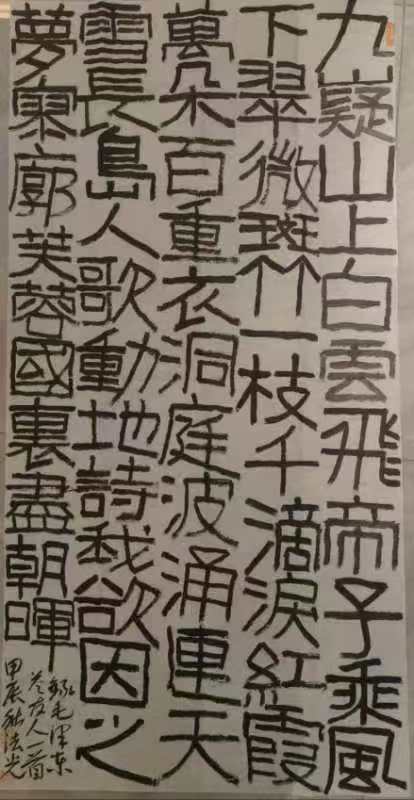 九嶷山上白雲飛帝子乘風
下翠微斑竹一枝千滴淚紅霞
萬朵百重衣洞庭波涌連天
雪長島人歌動地詩我欲因之
夢寥廓芙蓉國裏盡朝暉
錄毛澤东
答友人一首
甲辰秋法光